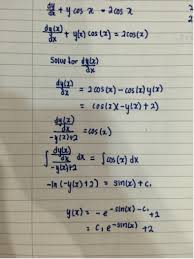 dy/dx + y cos x = 2cos x
dy(x)/dx + y(x) cos(x) = 2cos(x)
Solve for dy(x)/dx
dy(x)/dx = 2cos(x) - cos(x)y(x)
= cos(x)(-y(x)+2)
dy(x)/dx / -y(x)+2 = cos(x)
∫ dy(x)/dx / -y(x)+2 dx = ∫ cos(x) dx
-ln(-y(x)+2) = sin(x) + c₁
y(x) = -e^-sin(x)-c₁ +2
= c₁e^-sin(x) +2